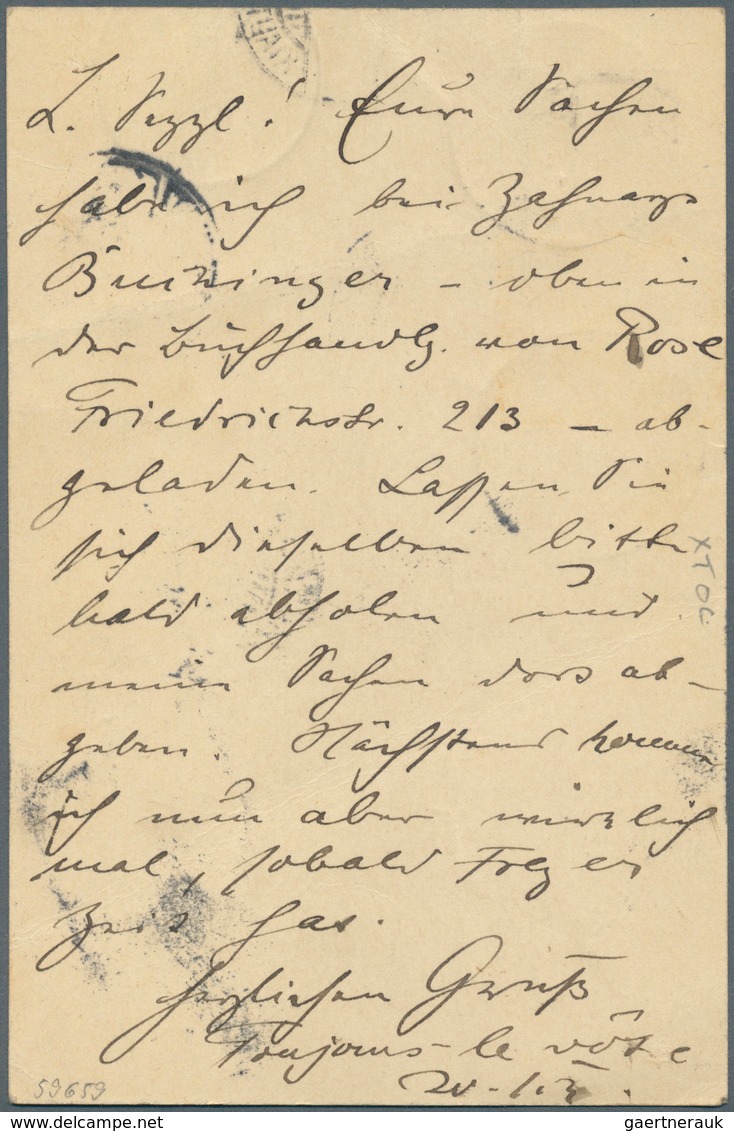 L. Sezzl! Eure Sachen
habe ich bei Zahnarzt
Buchinger - oben in
der Buchhandlg. von Rose
Friedrichstr. 213 - ab-
geladen. Lassen Sie
sich dieselben bitte
bald abholen und
meine Sachen dort ab-
geben. Nächstens komme
ich nun aber wirklich
mal, sobald er
Zeit hat.
herzlichen Gruß
Toujours le vôtre
XTOC
59659
gaertnerauk